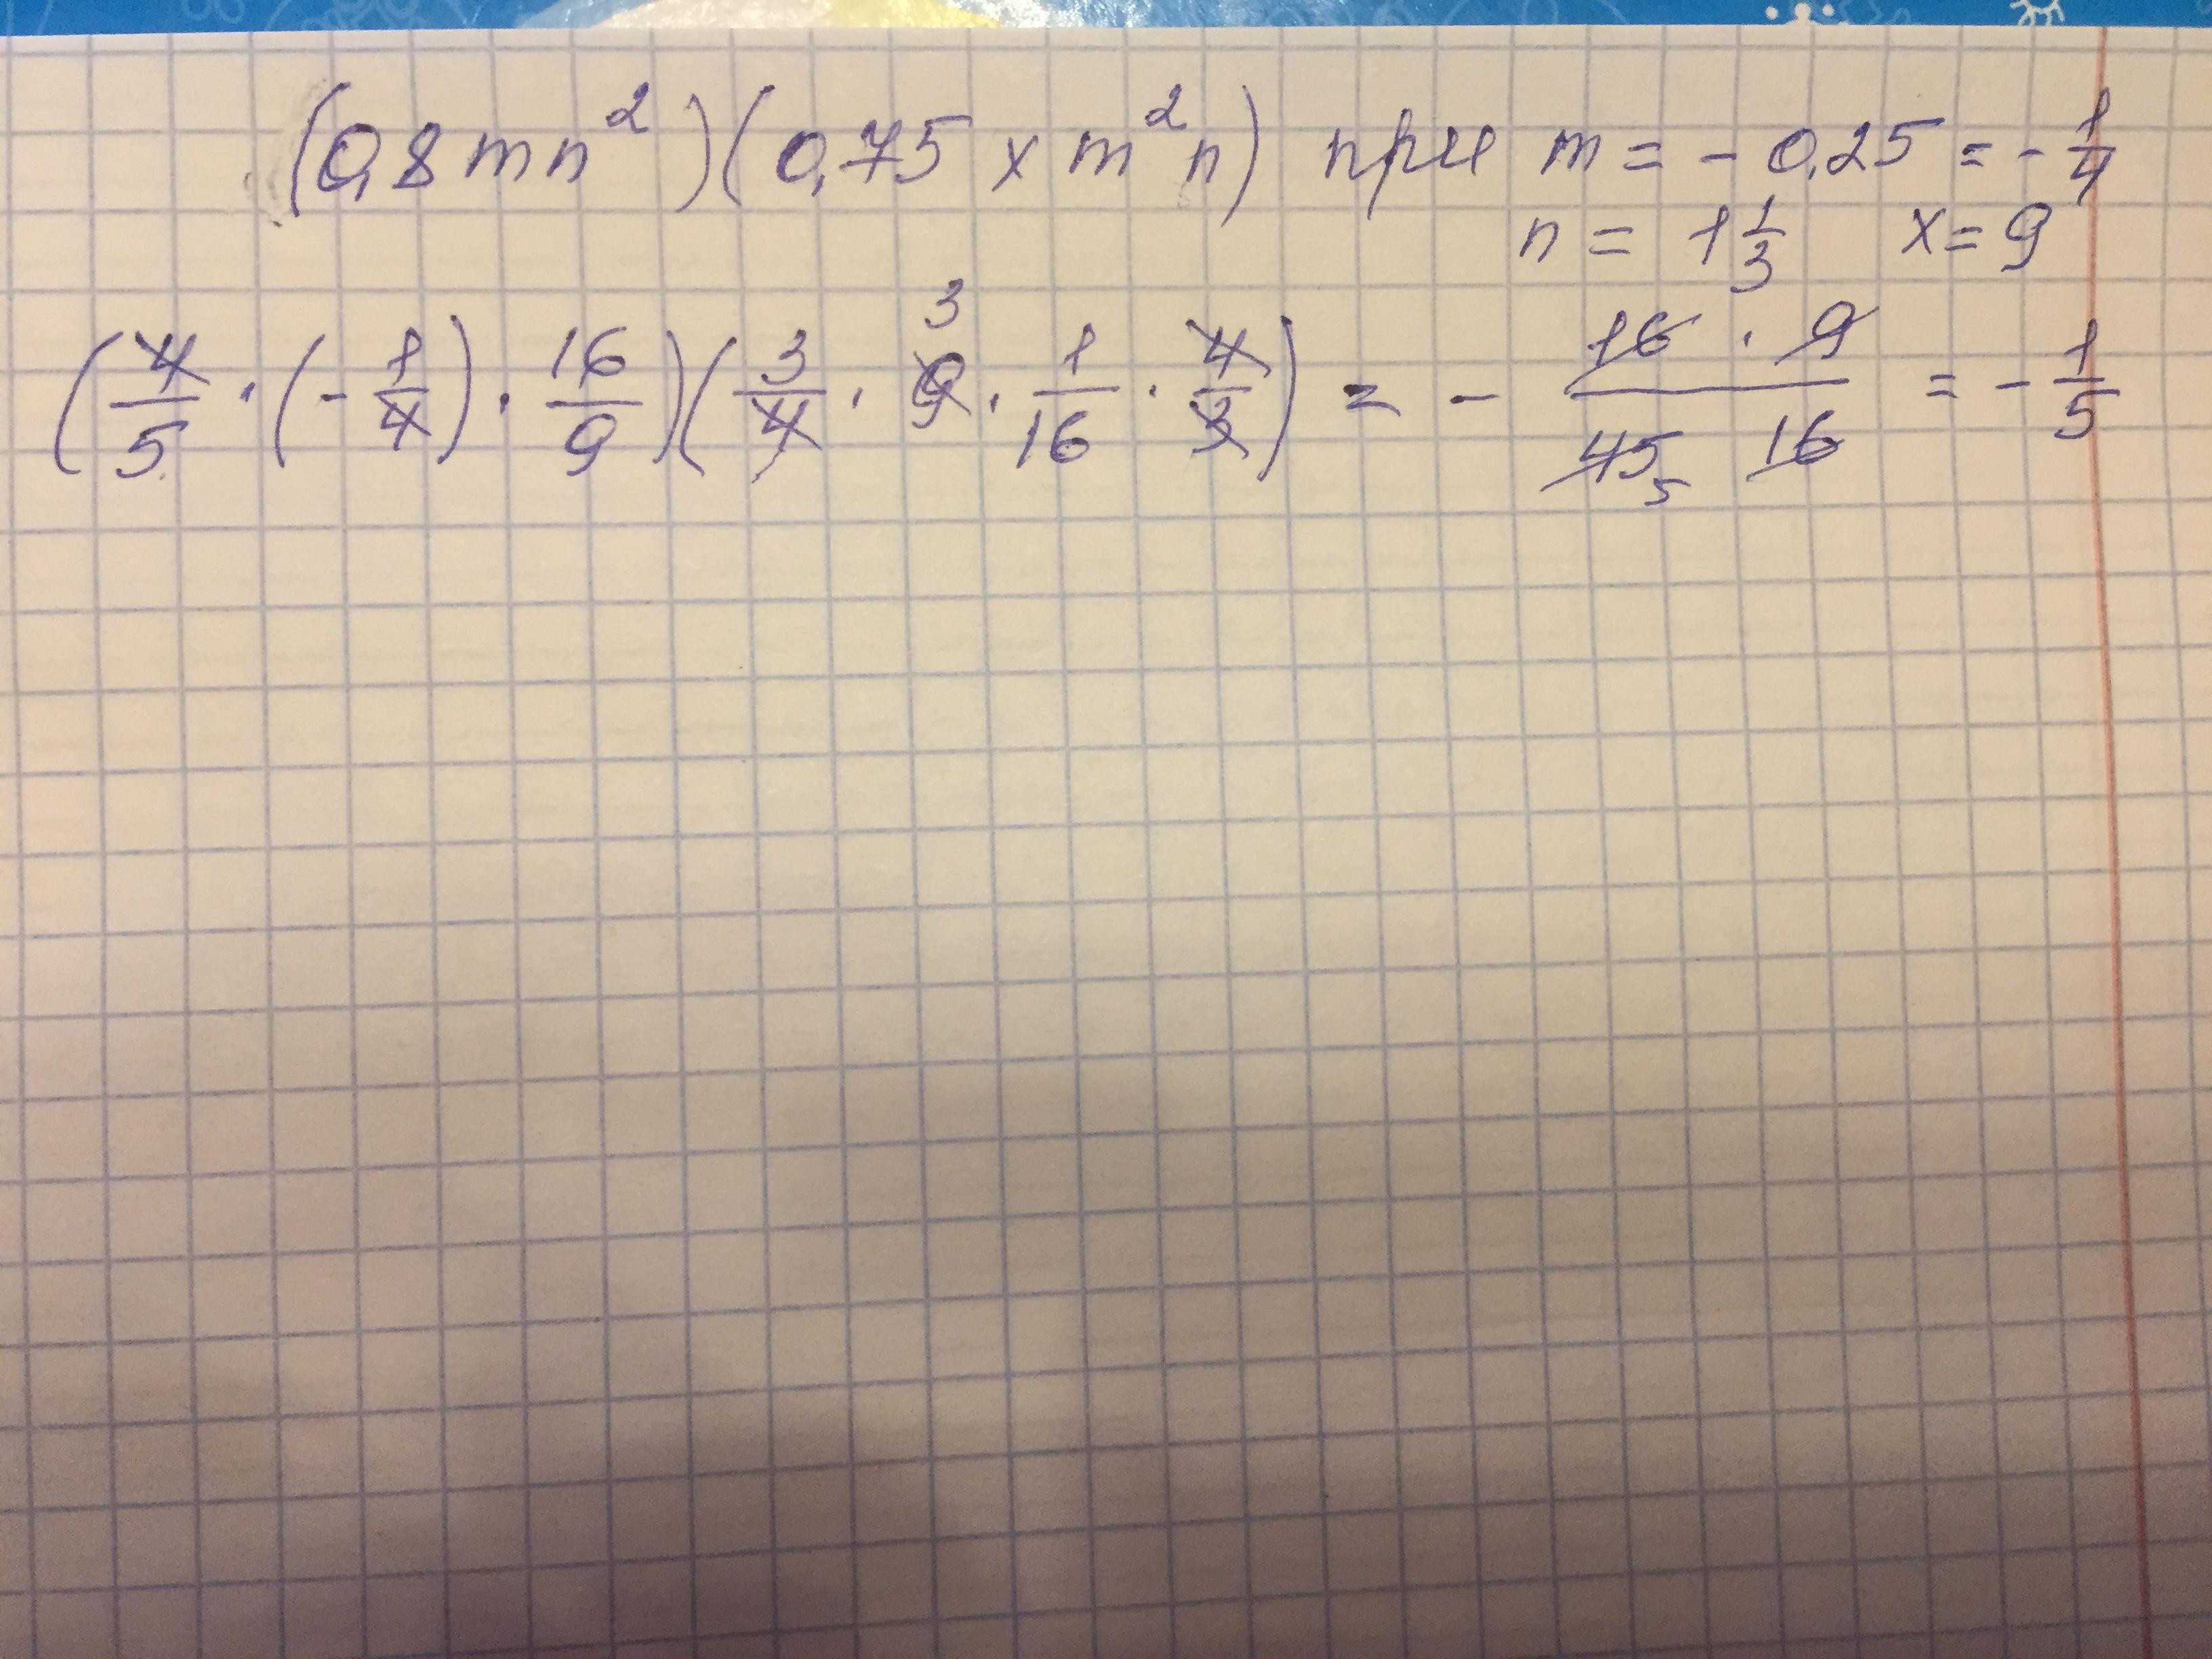 (0,8mn²)(0,75xm²n) при m = -0,25 = -1/4
n = 1 1/3 x = 9
(4/5 · (-1/4) · 16/9)(3/4 · 9 3 · 1/16 · 4/3) = - 16 · 9 / 45 5 16 = - 1/5